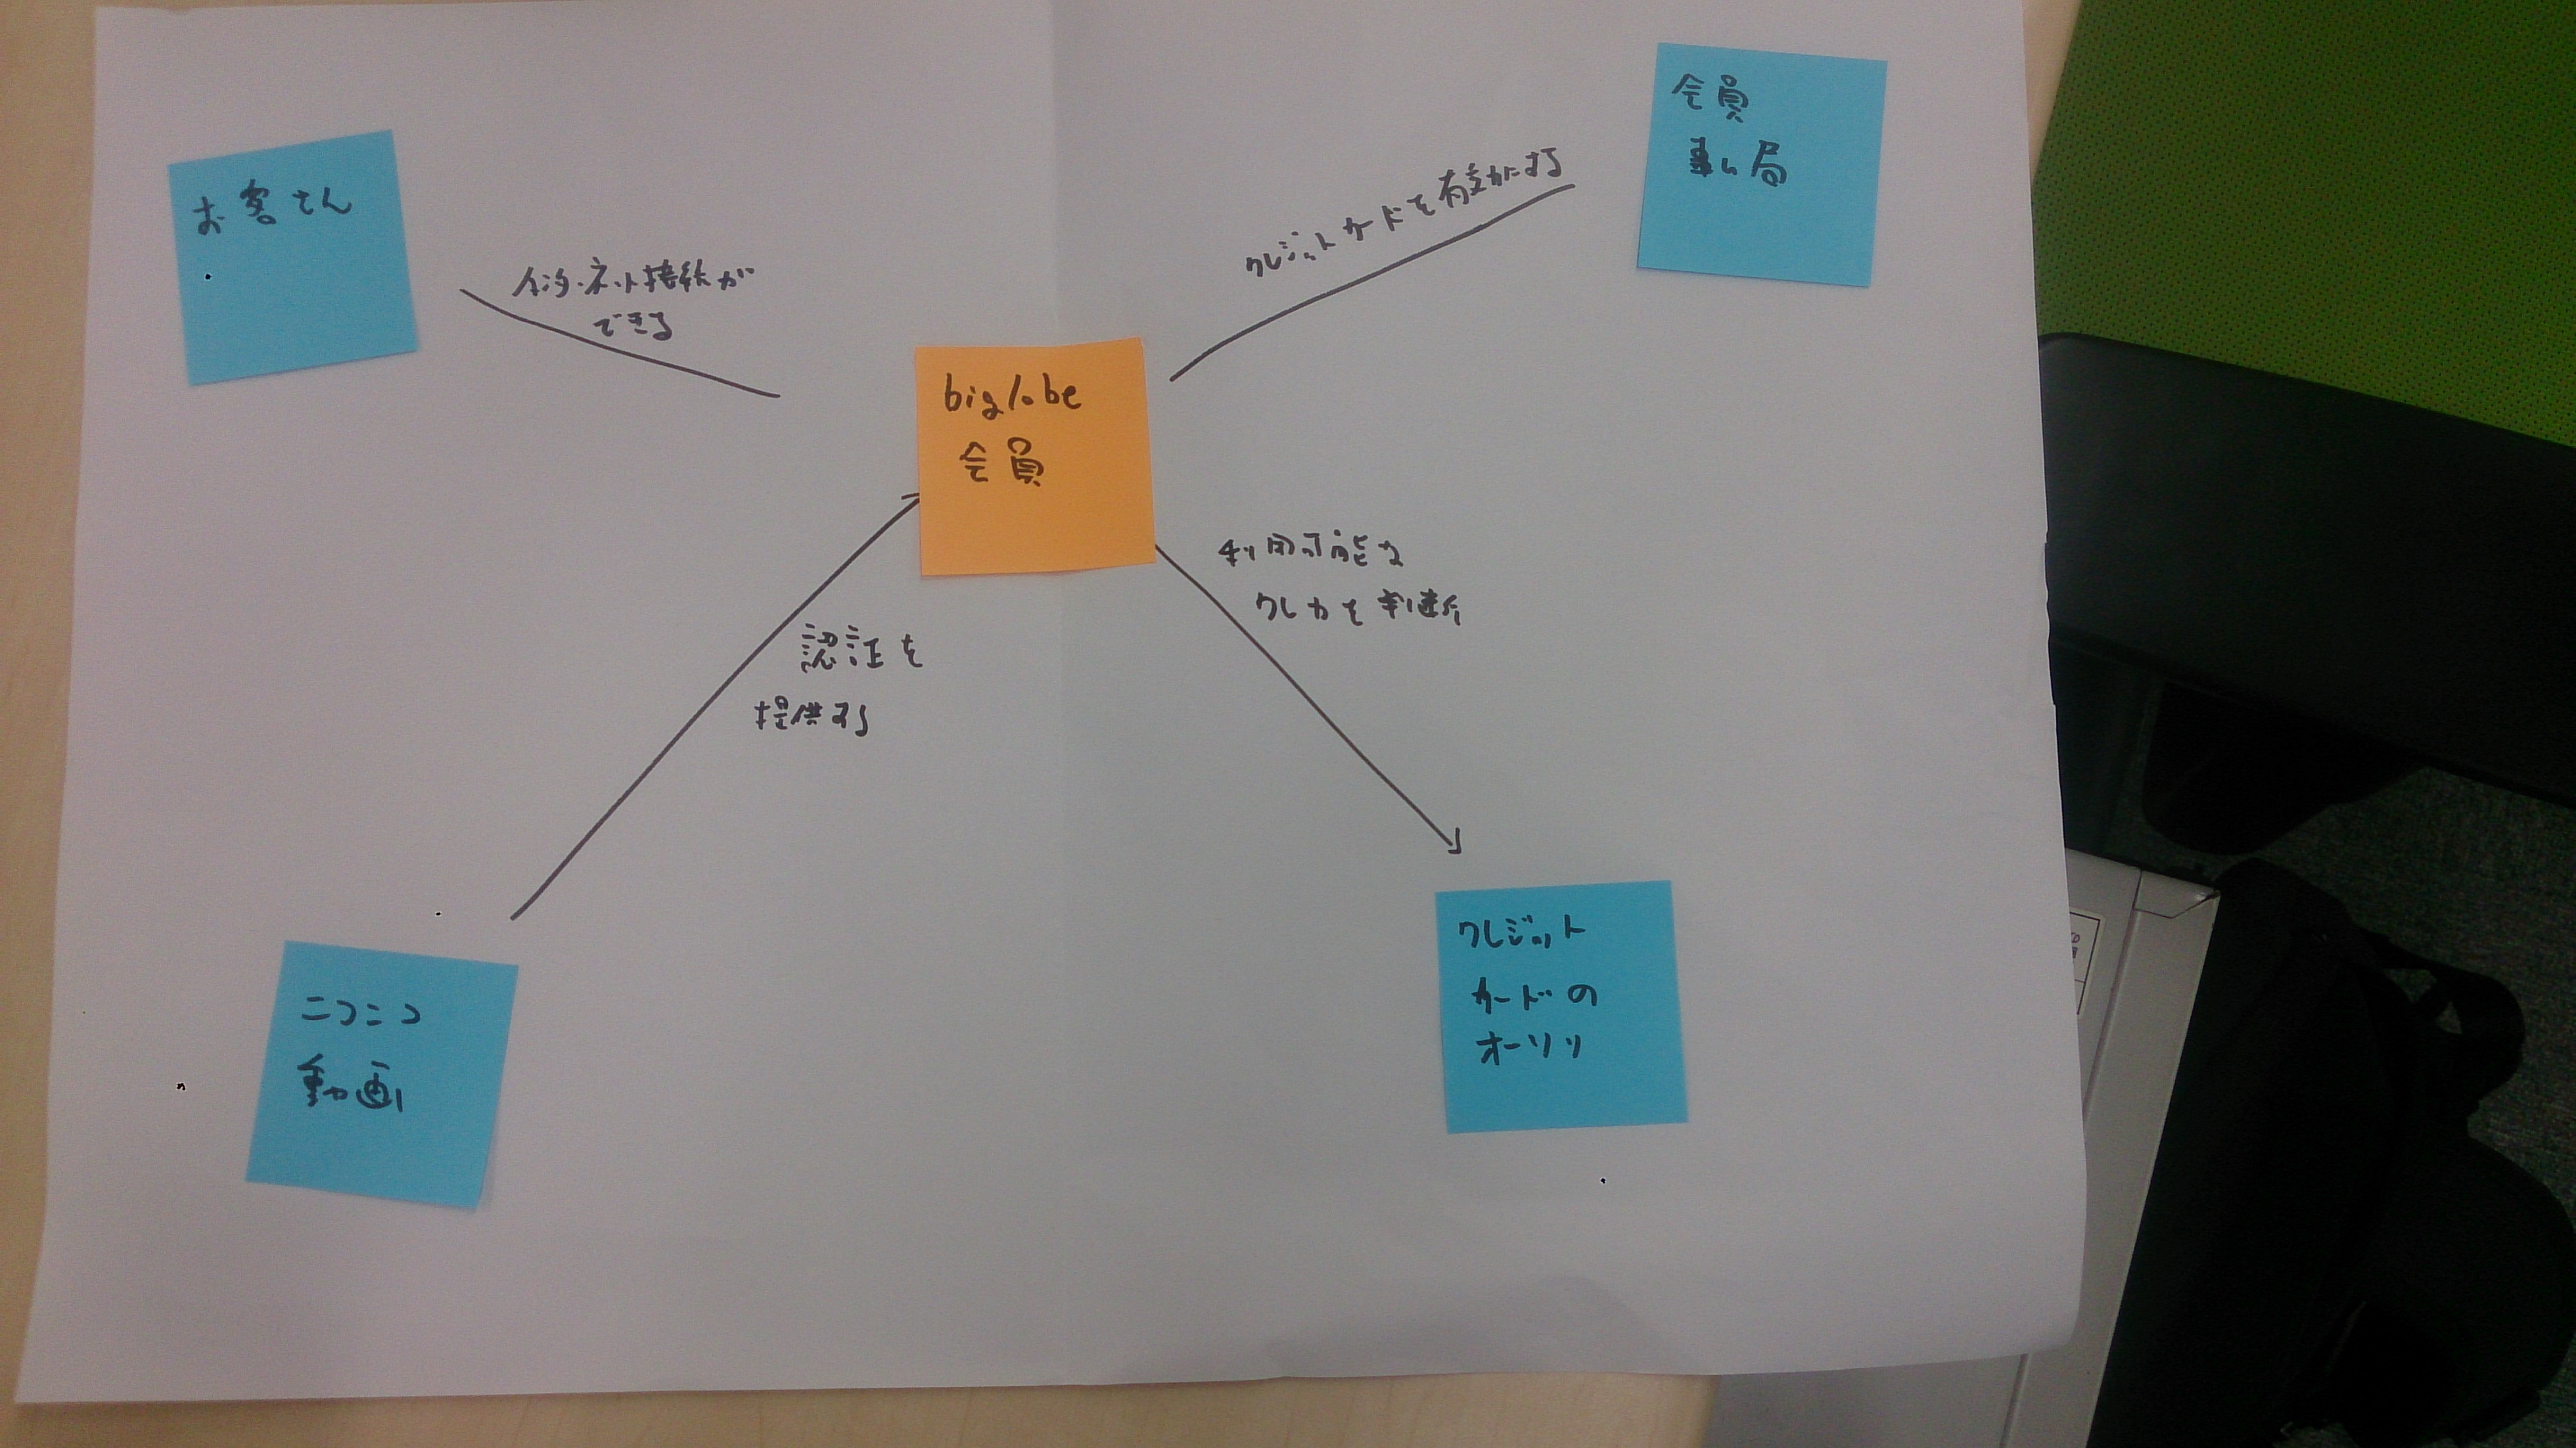 お客さん
インターネット接続が
できる
クレジットカードを有効にする
会員
事ム局
biglobe
会員
認証を
提供する
利用可能な
クレカを判断
ニコニコ
動画
クレジット
カードの
オーソリ